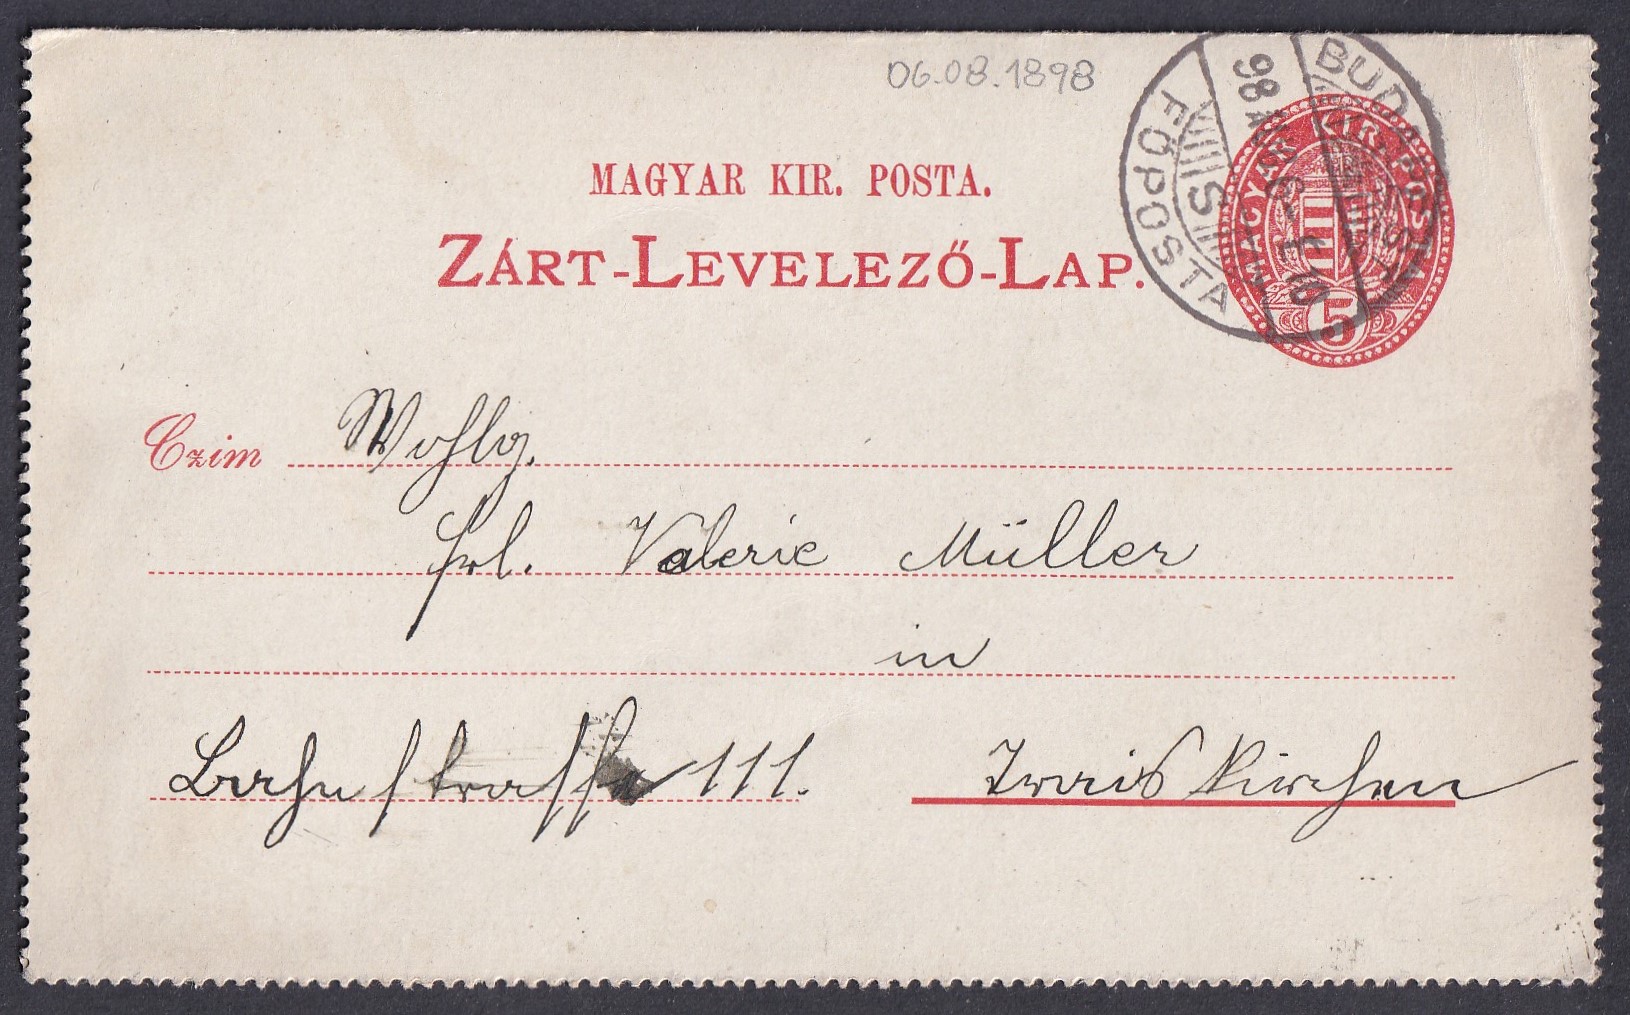 06.08.1898
BUDAPEST
98
S
FŐPOSTA
MAGYAR KIR. POSTA
5
MAGYAR KIR. POSTA.
ZÁRT-LEVELEZŐ-LAP.
Czim Wohlg.
Frl. Valerie Müller
in
Bahnstrasse 111. Traiskirchen